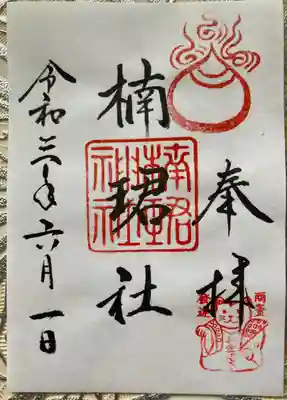 奉拝
楠珺社
令和三年六月一日